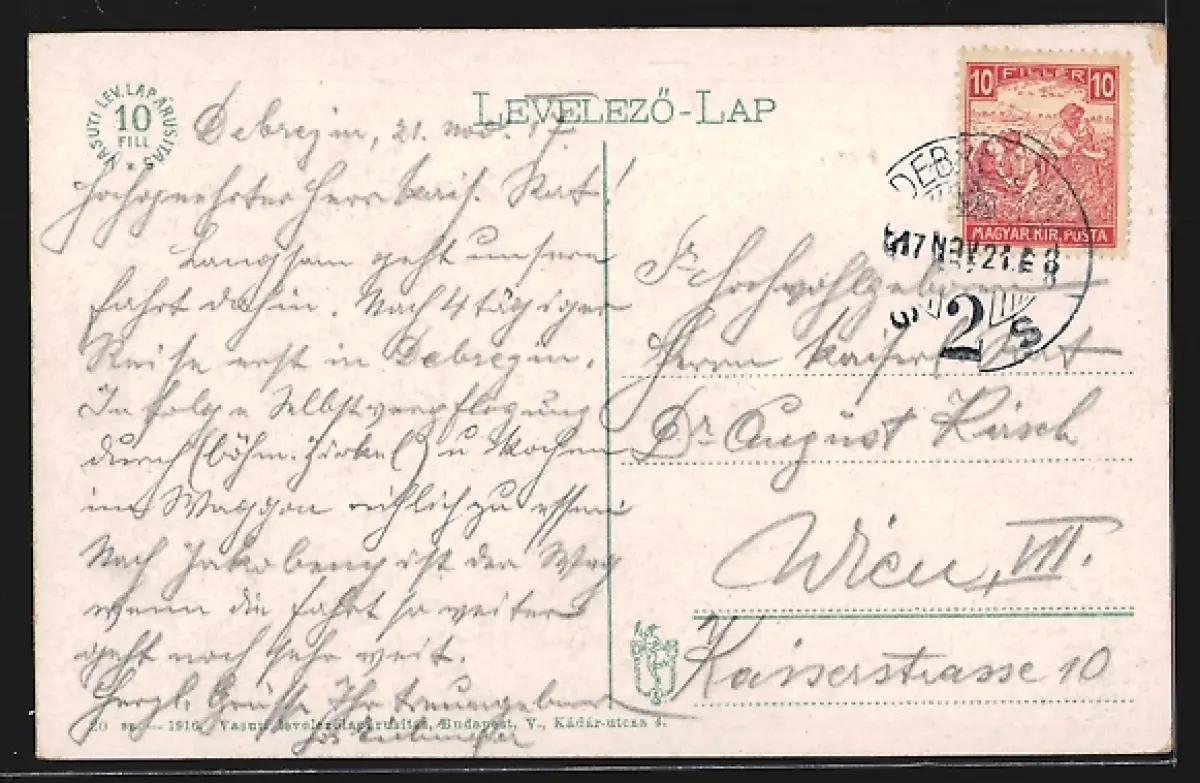 VASUTI LEV. LAPÁRUSITÁS
10
FILL
LEVELEZŐ-LAP
10 FILLÉR 10
MAGYAR KIR. POSTA
917 NOV 21. E 8
2 S
Debrezin, 21. nov. 17
Hochgeehrter Herr kais. Rat!
Langsam geht unsere
Fahrt dahin. Nach 4 tägiger
Reise erst in Debrezin.
In folge Selbstverpflegung
durch (böhm. Zirkel) u Kochen
im Waggon reichlich zu essen
Nach Jakobeny ist der Weg
wenn die Fahrt so weiter
geht noch sehr weit.
Herzl. Grüsse Ihr treuergebener
Sr Hochwohlgeboren
Herrn kaiserl. Rat
Dr. August Kirsch
Wien, VIII.
Kaiserstrasse 10
20 sz. — 1916. Vasuti levelezőlapárusitás, Budapest, V., Kádár-utcza 4.